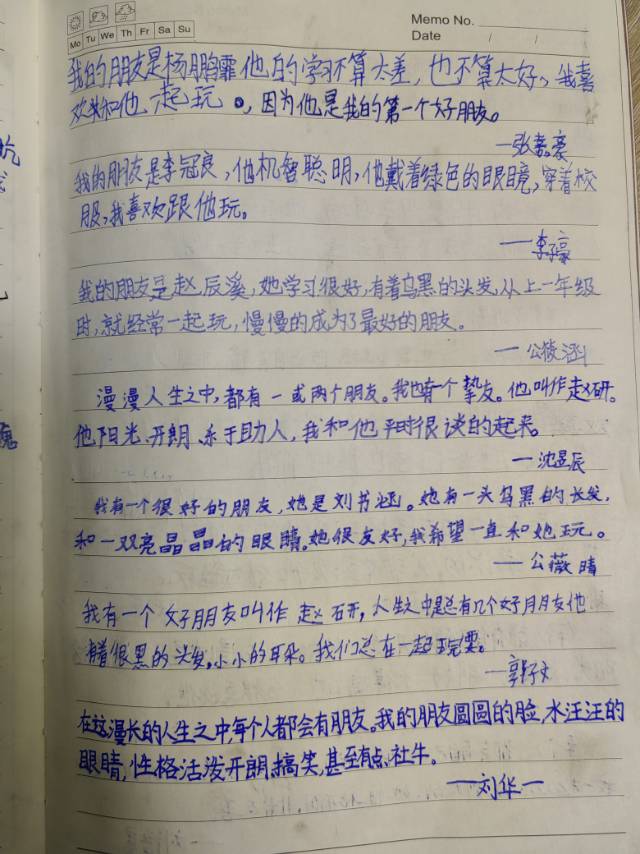 Memo No.
Mo Tu We Th Fr Sa Su
Date / /
我的朋友是杨鹏霏他的学习不算太差，也不算太好，我喜
欢我和他一起玩。，因为他是我的第一个好朋友。
—张嘉豪
我的朋友是李冠良，他机智聪明，他戴着绿色的眼睛，穿着校
服，我喜欢跟他玩。
——李豪
我的朋友是赵辰溪，她学习很好，有着乌黑的头发，从上一年级
时，就经常一起玩，慢慢的成为了最好的朋友。
— 公筱涵
漫漫人生之中，都有一或两个朋友。我也有一个挚友。他叫作赵研。
他阳光、开朗、乐于助人，我和他平时很谈的起来。
—沈昱辰
我有一个很好的朋友，她是刘书涵。她有一头乌黑的长发，
和一双亮晶晶的眼睛。她很友好，我希望一直和她玩。
——公薇晴
我有一个好朋友叫作赵研，人生之中总有几个好朋友他
有着很黑的头发，小小的耳朵。我们总在一起玩耍。
—郭子文
在这漫长的人生之中每个人都会有朋友。我的朋友圆圆的脸，水汪汪的
眼睛，性格活泼开朗，搞笑，甚至有点社牛。
——刘华一